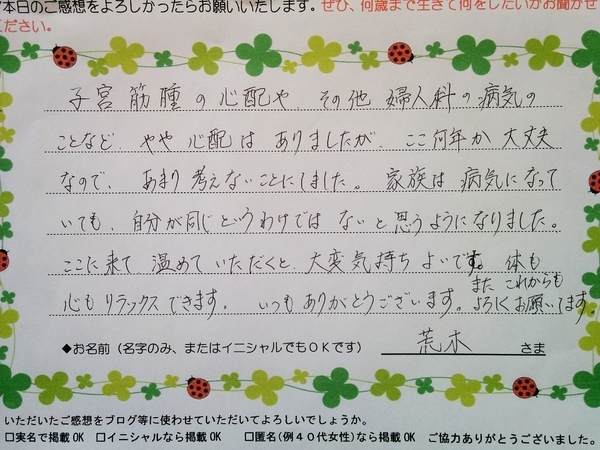 本日のご感想をよろしかったらお願いいたします。ぜひ、何歳まで生きて何をしたいかお聞かせ
ください。
子宮筋腫の心配や、その他婦人科の病気の
ことなど、やや心配はありましたが、ここ何年か大丈夫
なので、あまり考えないことにしました。家族は病気になって
いても、自分が同じというわけではないと思うようになりました。
ここに来て温めていただくと、大変気持ちよいです。体も
心もリラックスできます。いつもありがとうございます。
また これからも
よろしくお願いします。
◆お名前(名字のみ、またはイニシャルでもOKです) 荒木 さま
いただいたご感想をブログ等に使わせていただいてよろしいでしょうか。
□実名で掲載OK □イニシャルなら掲載OK □匿名(例40代女性)なら掲載OK ご協力ありがとうございました。